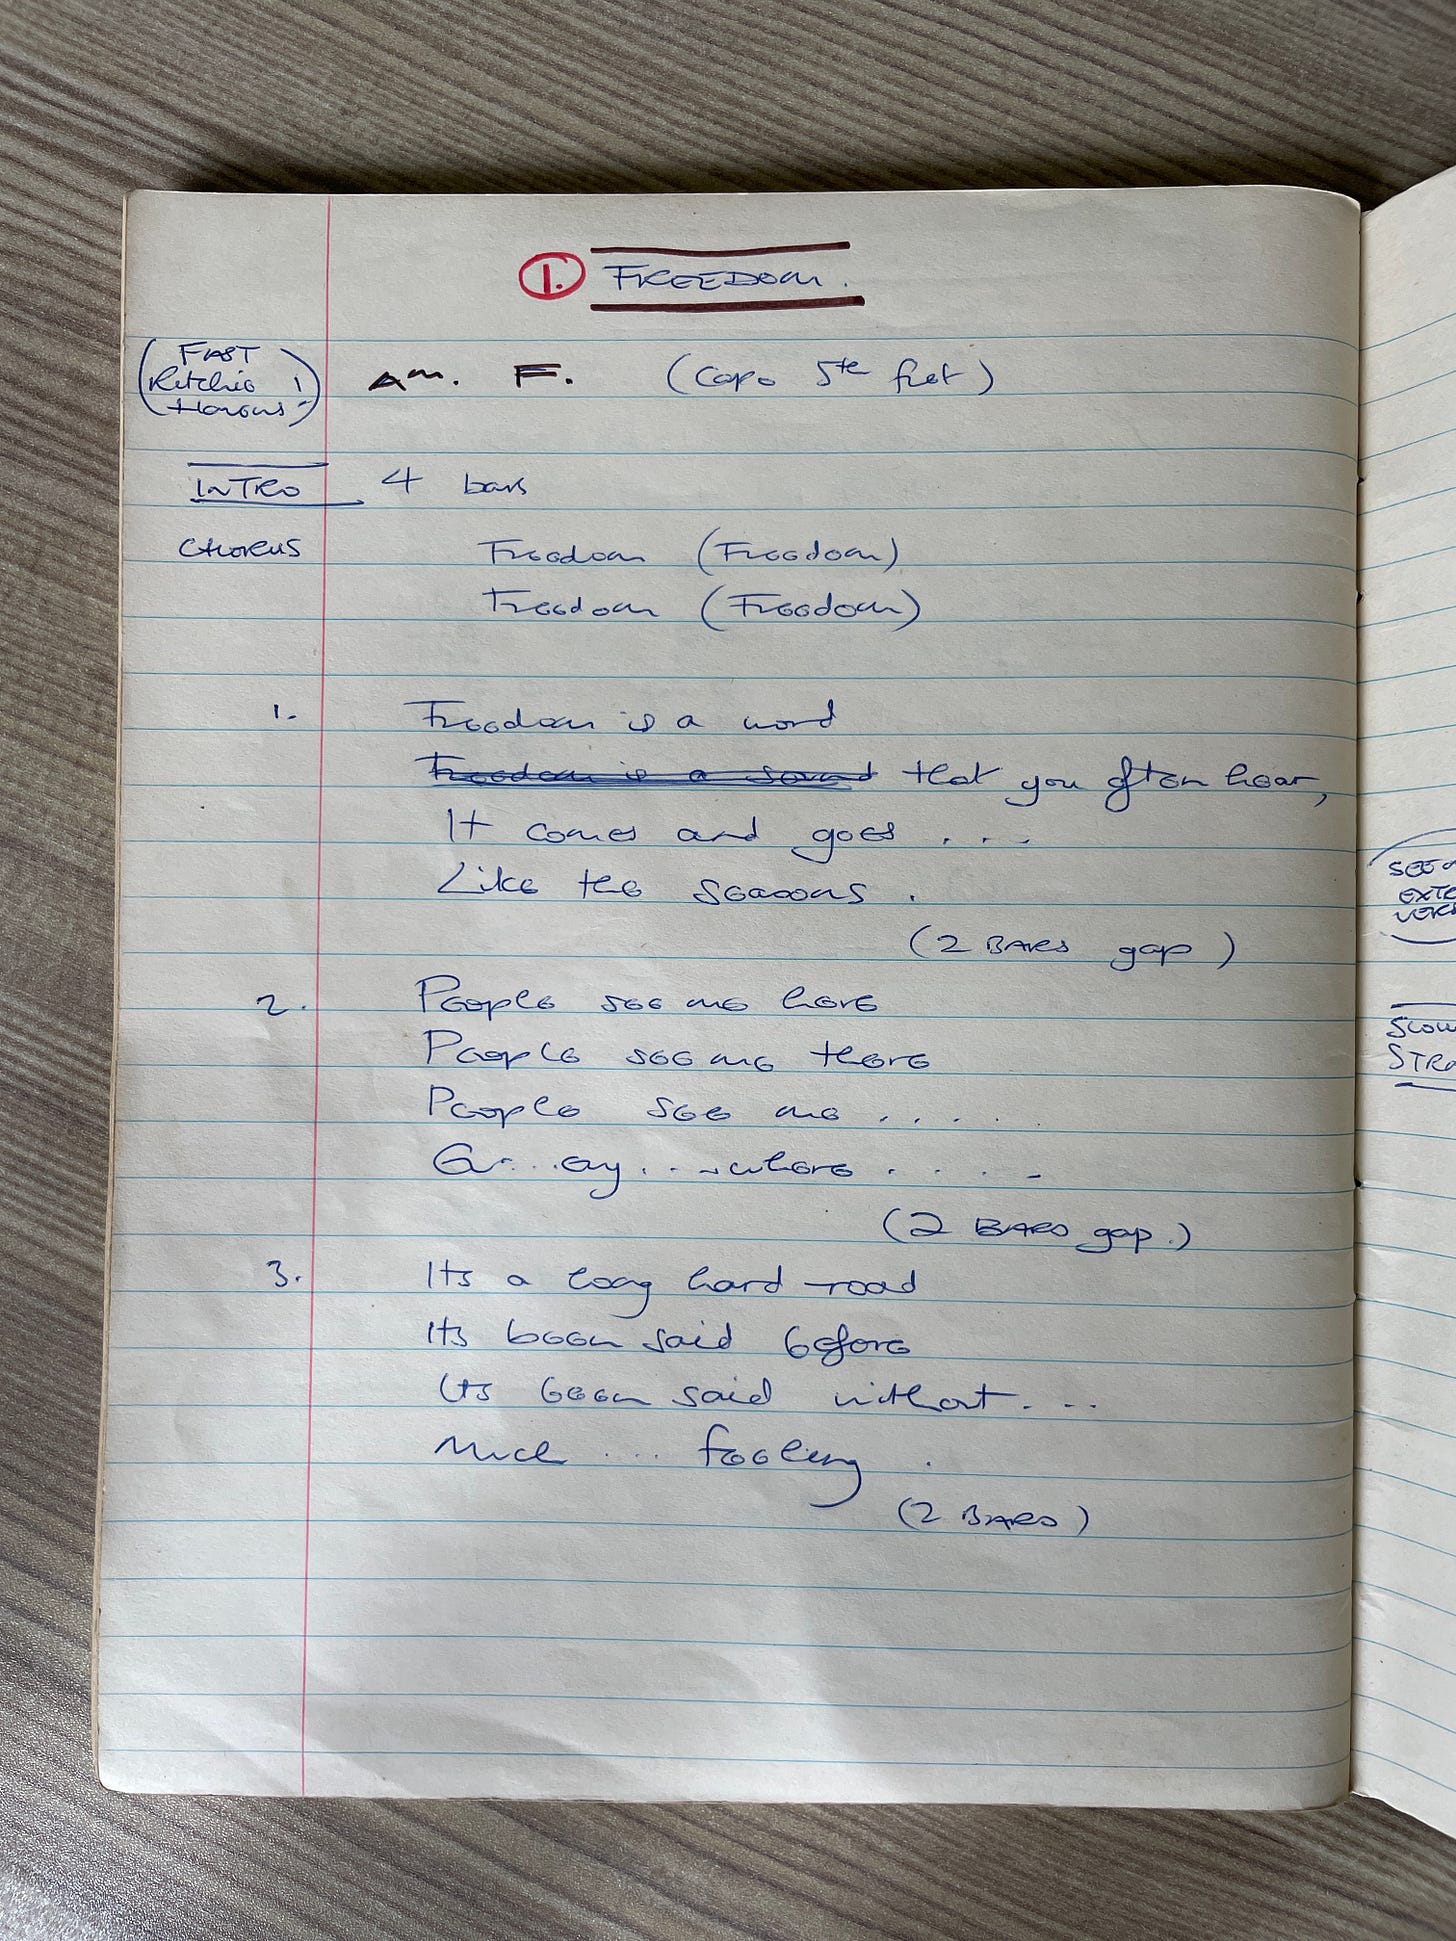 1. FREEDOM.
(FAST
Ritchie
Havens!)
Am. F. (Capo 5th fret)
INTRO 4 bars
CHORUS Freedom (Freedom)
Freedom (Freedom)
1. Freedom is a word
Freedom is a sound that you often hear,
It comes and goes ...
Like the seasons.
(2 BARS gap)
2. People see me here
People see me there
People see me ....
(2 BARS gap.)
3. Its a long hard road
Its been said before
Its been said without...
Much ... feeling.
(2 BARS)
SLOW